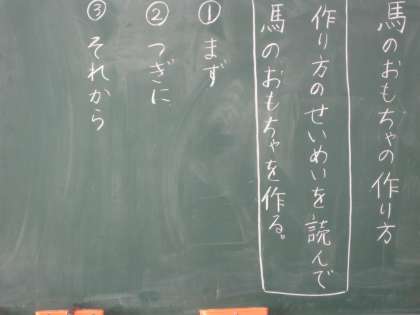 馬のおもちゃの作り方
作り方のせいめいを読んで
馬のおもちゃを作る。
①まず
②つぎに
③それから